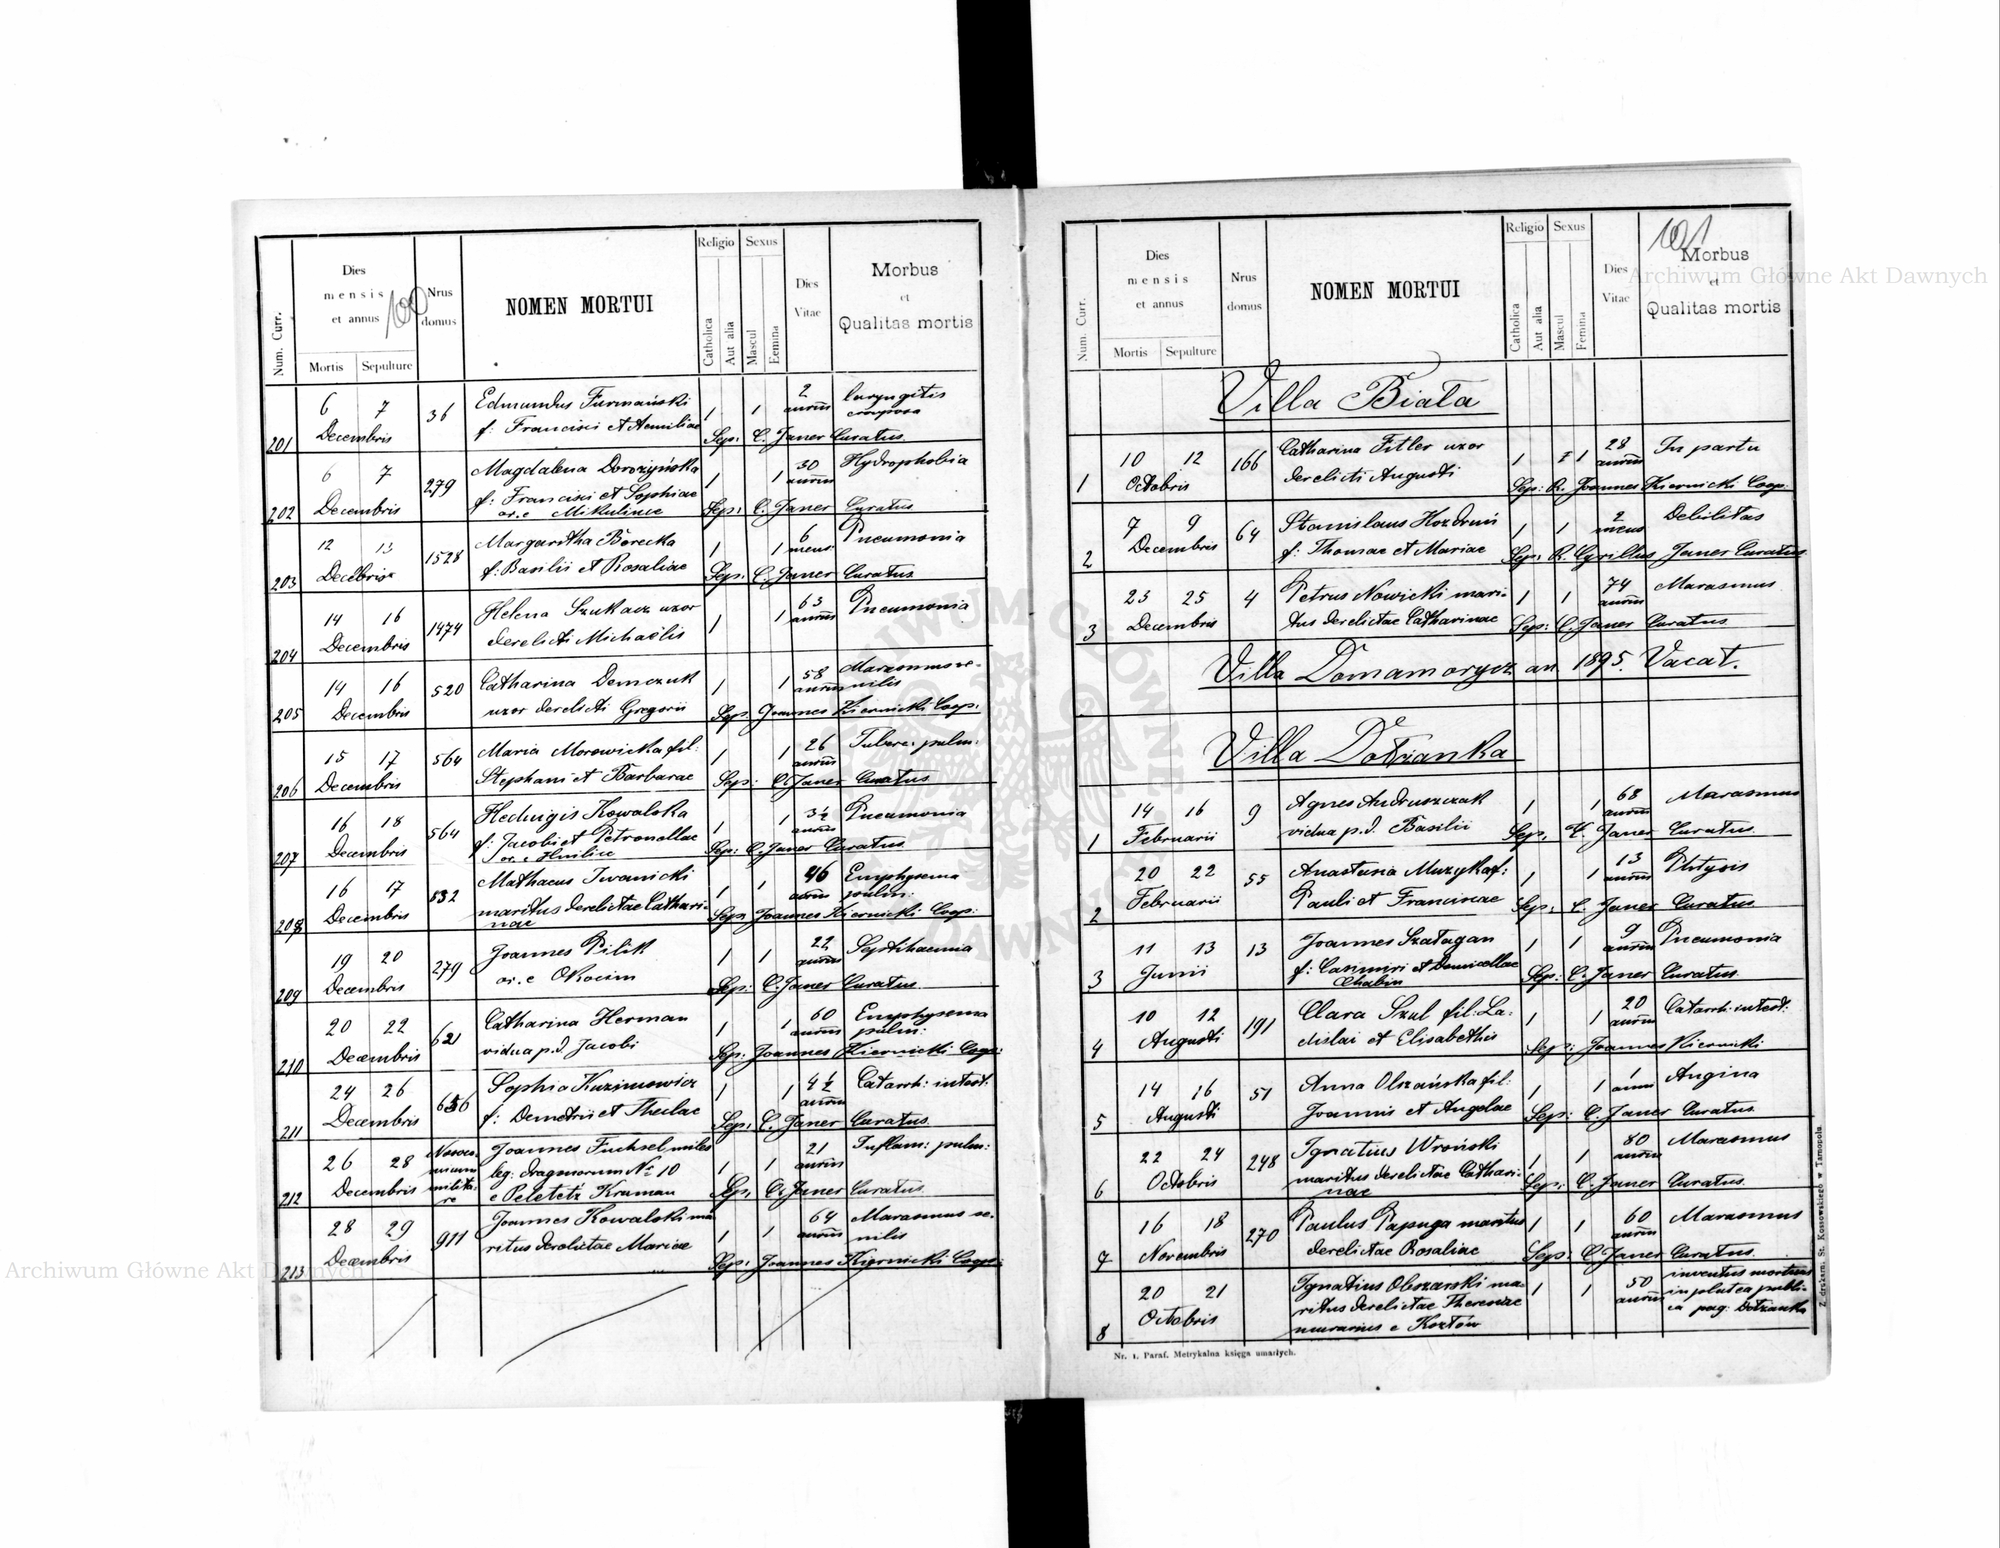 Archiwum Główne Akt Dawnych
100
Num. Curr.
Dies
mensis
et annus
Mortis
Sepulture
Nrus
domus
NOMEN MORTUI
Religio
Catholica
Aut alia
Sexus
Mascul
Femina
Dies
Vitae
Morbus
et
Qualitas mortis
201 6 7 Decembris 36 Edmundus Furmański 1 1 2 annus laryngitis
crouposa
f: Francisci et Aemiliae Sep: C. Janer Curatus
202 6 7 Decembris 279 Magdalena Dorożyńska 1 1 30 annus Hydrophobia
f: Francisci et Sophiae
or. e Mikulince Sep: C. Janer Curatus
203 12 13 Decebris 1528 Margaritha Berecka 1 1 6 mens: Pneumonia
f: Basilii et Rosaliae Sep: C. Janer Curatus
204 14 16 Decembris 1474 Helena Szukacz uxor 1 1 63 annus Pneumonia
derelicti Michaëlis
205 14 16 Decembris 520 Catharina Demczuk 1 1 58 annus Marasmus se-
nilis
uxor derelicti Gregorii Sep: Joannes Kiernicki Coop.
206 15 17 Decembris 564 Maria Morowicka fil: 1 1 26 annus Tuberc: pulm:
Stephani et Barbarae Sep: C. Janer Curatus
207 16 18 Decembris 564 Hedwigis Kowalska 1 1 3½ annus Pneumonia
f: Jacobi et Petronellae Sep: C. Janer Curatus
208 16 17 Decembris 832 Mathaeus Iwanicki 1 1 46 annus Emphysema
pulm:
maritus derelictae Cathari-
nae Sep: Joannes Kiernicki Coop:
209 19 20 Decembris 279 Joannes Pilik 1 1 22 annus Septihaemia
or. e Okocim Sep: C. Janer Curatus
210 20 22 Decembris 621 Catharina Herman 1 1 60 annus Emphysema
pulm:
vidua p.d. Jacobi Sep: Joannes Kiernicki Coop:
211 24 26 Decembris 656 Sophia Kuzimowicz 1 1 4½ annus Catarrh: intest:
f: Demetrii et Theclae Sep: C. Janer Curatus
212 26 28 Decembris militare Joannes Fuchsel miles 1 1 21 annus Inflam: pulm:
leg: dragonorum No 10
e Peletetz Kraman Sep: C. Janer Curatus
213 28 29 Decembris 911 Joannes Kowalski ma- 1 1 64 annus Marasmus se-
nilis
ritus derelictae Mariae Sep: Joannes Kiernicki Coop:
Archiwum Główne Akt Dawnych
101
Num. Curr.
Dies
mensis
et annus
Mortis
Sepulture
Nrus
domus
NOMEN MORTUI
Religio
Catholica
Aut alia
Sexus
Mascul
Femina
Dies
Vitae
Morbus
et
Qualitas mortis
Villa Biała
1 10 12 Octobris 166 Catharina Fitler uxor 1 1 28 annus In partu
derelicti Augusti Sep: R. Joannes Kiernicki Coop.
2 7 9 Decembris 64 Stanislaus 1 1 2 mens Debilitas
f: Thomae et Mariae Sep: R. Cyrillus Janer Curatus
3 23 25 Decembris 4 Petrus Nowicki mari- 1 1 74 annus Marasmus
tus derelictae Catharinae Sep: C. Janer Curatus
Villa Domamorycz an 1895. Vacat.
Villa Dołżanka
1 14 16 Februarii 9 Agnes Andruszczak 1 1 68 annus Marasmus
vidua p.d. Basilii Sep: C. Janer Curatus
2 20 22 Februarii 55 Anastasia Muzyka f: 1 1 13 annus Phtysis
Pauli et Francincae Sep: C. Janer Curatus
3 11 13 Junii 13 Joannes Szatagan 1 1 9 annus Pneumonia
f: Casimiri et Domicellae
Chabin Sep: C. Janer Curatus
4 10 12 Augusti 191 Clara Szul fil: La- 1 1 20 annus Catarrh: intest:
dislai et Elisabethis Sep: Joannes Kiernicki
5 14 16 Augusti 51 Anna Olszańska fil: 1 1 1 anni Angina
Joannis et Angelae Sep: C. Janer Curatus
6 22 24 Octobris 248 Ignatius Wroński 1 1 80 annus Marasmus
maritus derelictae Cathari-
nae Sep: C. Janer Curatus
7 16 18 Novembris 270 Paulus Papuga maritus 1 1 60 annus Marasmus
derelictae Rosaliae Sep: C. Janer Curatus
8 20 21 Octobris Ignatius Olszarski ma- 1 1 50 annus inventus mortuus
ritus derelictae Theresiae in platea publi-
murarius e Kozłów ca pag: Dołżanka
Nr. 1. Paraf. Metrykalna księga umarłych.
Z drukarni St. Kossowskiego w Tarnopolu.
ARCHIWUM GŁÓWNE AKT DAWNYCH